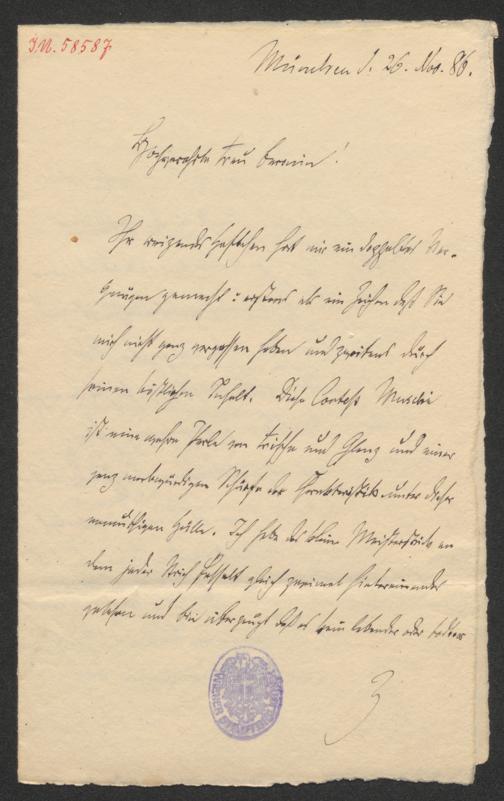 I.N. 58587
München d. 26. Nov. 86.
Hochverehrte Frau Baronin!
Ihr reizendes Heftchen hat mir ein doppeltes Ver-
gnügen gemacht: erstens als ein Zeichen daß Sie
mich nicht ganz vergessen haben und zweitens durch
seinen köstlichen Inhalt. Diese Contess Muschi
ist eine wahre Perle von Frische und Glanz und einer
ganz merkwürdigen Schärfe der Charakteristik unter dieser
anmuthigen Hülle. Ich habe das kleine Meisterstück an
dem jeder Strich fesselt gleich zweimal hintereinander
gelesen und bin überzeugt daß es kein lebender oder todter